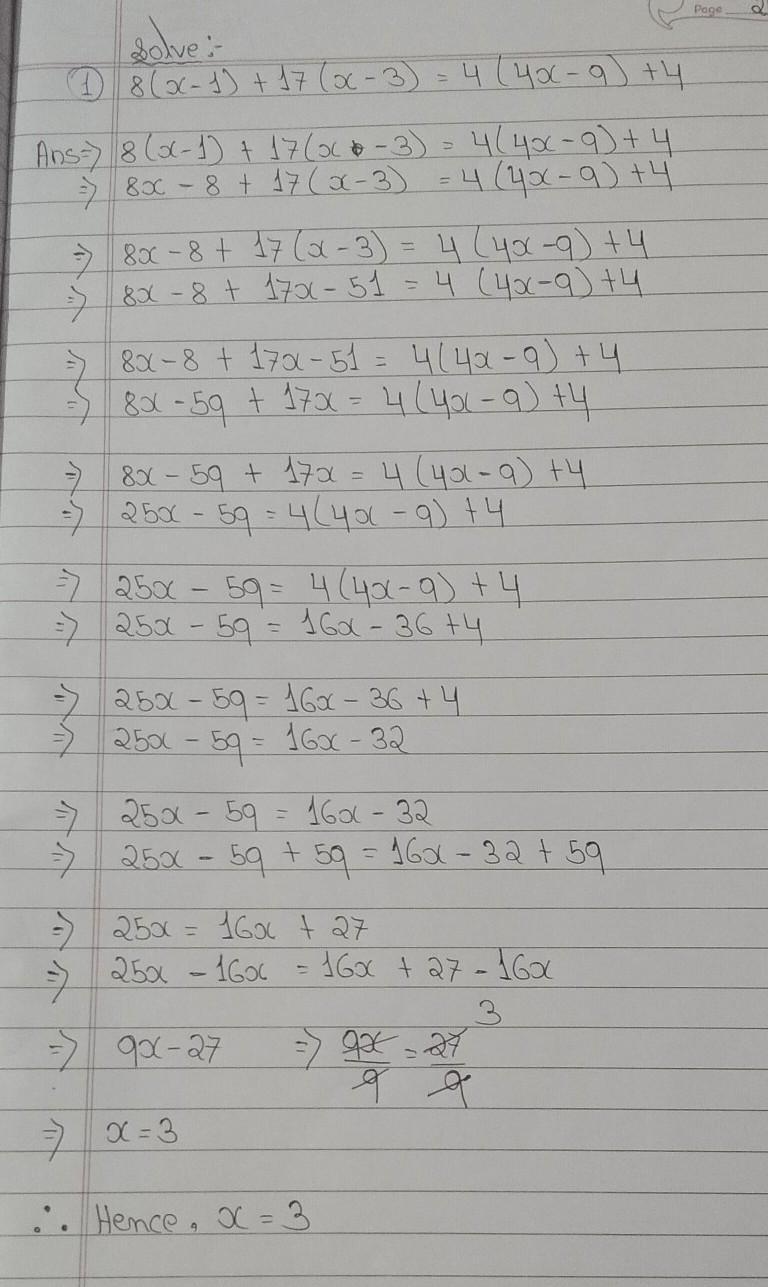 Page 2
Solve :-
① 8(x-1) + 17(x-3) = 4(4x-9) +4
Ans⇒ 8(x-1) + 17(x-3) = 4(4x-9) + 4
⇒ 8x - 8 + 17(x-3) = 4(4x-9) +4
⇒ 8x-8 + 17(x-3) = 4(4x-9) +4
⇒ 8x - 8 + 17x - 51 = 4 (4x-9) +4
⇒ 8x-8 + 17x-51 = 4(4x-9) +4
⇒ 8x - 59 + 17x = 4(4x-9) +4
⇒ 8x - 59 + 17x = 4(4x-9) +4
⇒ 25x - 59 = 4(4x-9) +4
⇒ 25x - 59 = 4(4x-9) +4
⇒ 25x - 59 = 16x - 36 +4
⇒ 25x - 59 = 16x - 36 + 4
⇒ 25x - 59 = 16x - 32
⇒ 25x - 59 = 16x - 32
⇒ 25x - 59 + 59 = 16x - 32 + 59
⇒ 25x = 16x + 27
⇒ 25x - 16x = 16x + 27 - 16x
⇒ 9x-27 ⇒ 9x/9 = 27/9 3
⇒ x=3
∴ Hence, x = 3